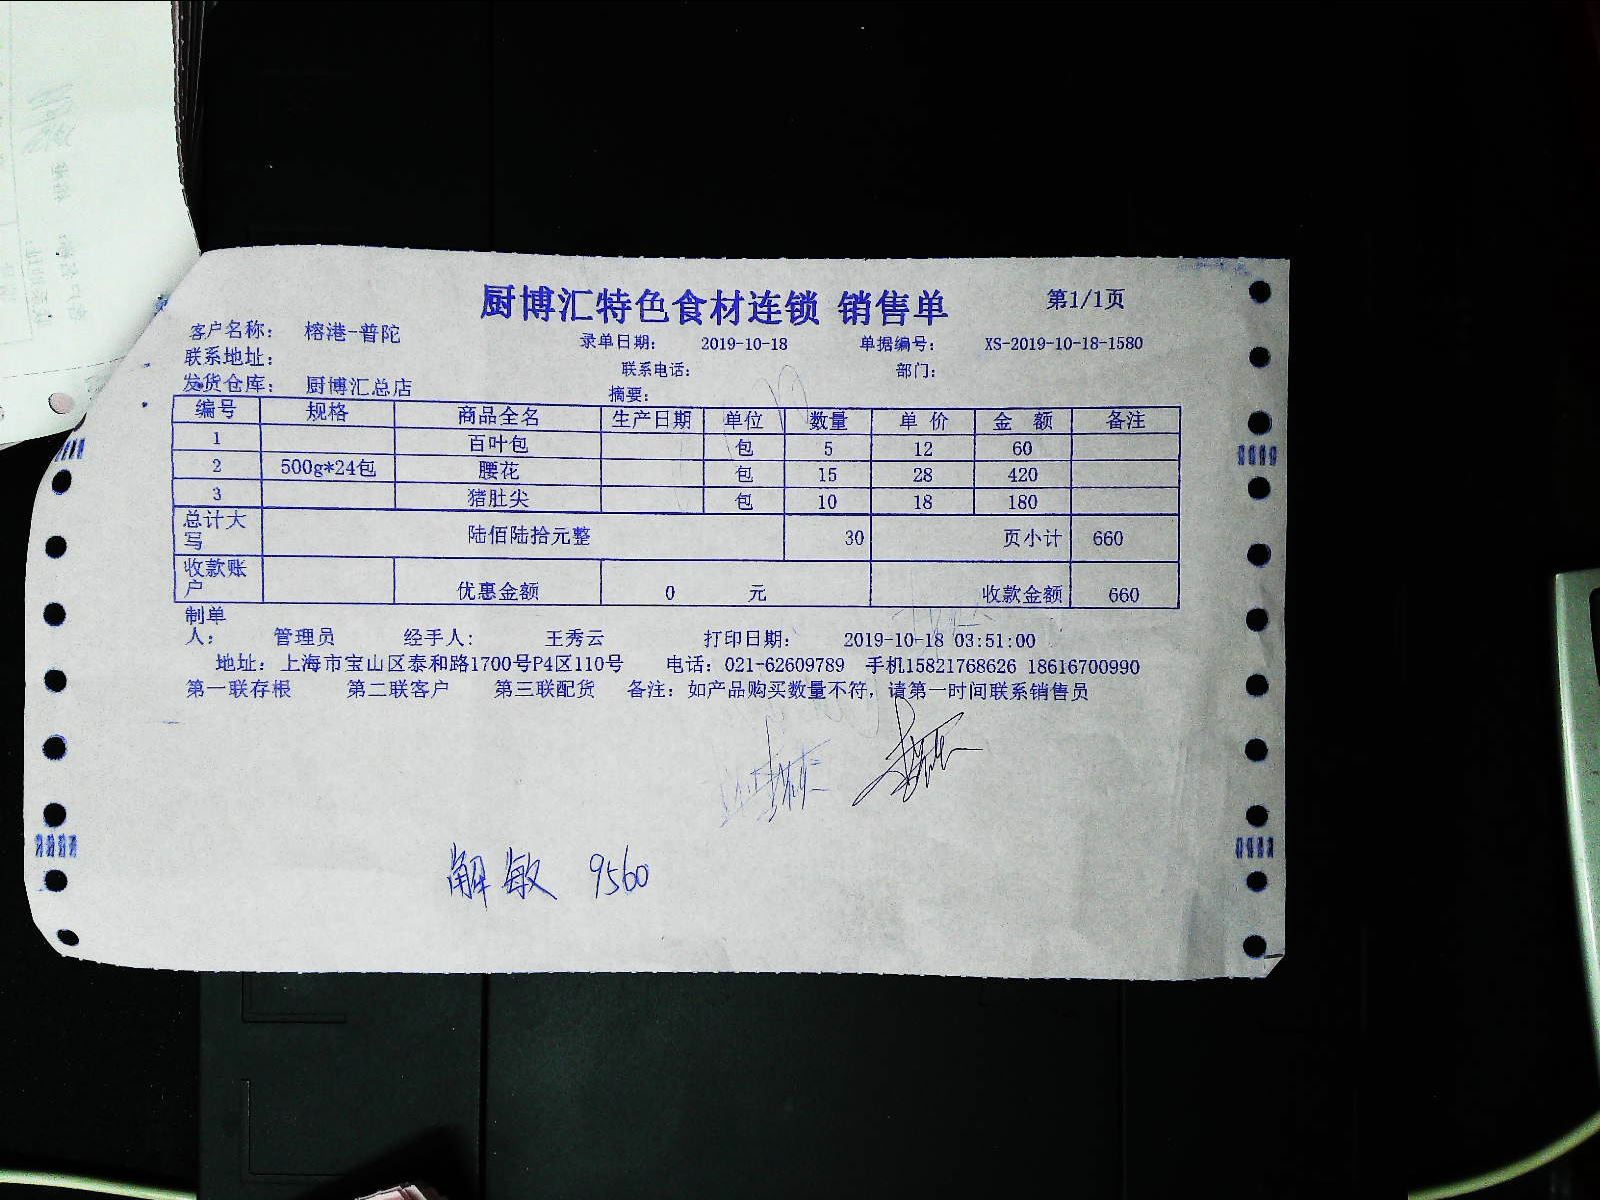 厨博汇特色食材连锁 销售单 第1/1页
客户名称： 榕港-普陀 录单日期： 2019-10-18 单据编号： XS-2019-10-18-1580
联系地址： 联系电话： 部门：
发货仓库： 厨博汇总店 摘要：
编号 规格 商品全名 生产日期 单位 数量 单 价 金 额 备注
1 百叶包 包 5 12 60
2 500g*24包 腰花 包 15 28 420
3 猪肚尖 包 10 18 180
总计大写 陆佰陆拾元整 30 页小计 660
收款账户 优惠金额 0 元 收款金额 660
制单人： 管理员 经手人： 王秀云 打印日期： 2019-10-18 03:51:00
地址：上海市宝山区泰和路1700号P4区110号 电话：021-62609789 手机15821768626 18616700990
第一联存根 第二联客户 第三联配货 备注：如产品购买数量不符，请第一时间联系销售员
解敏 9560